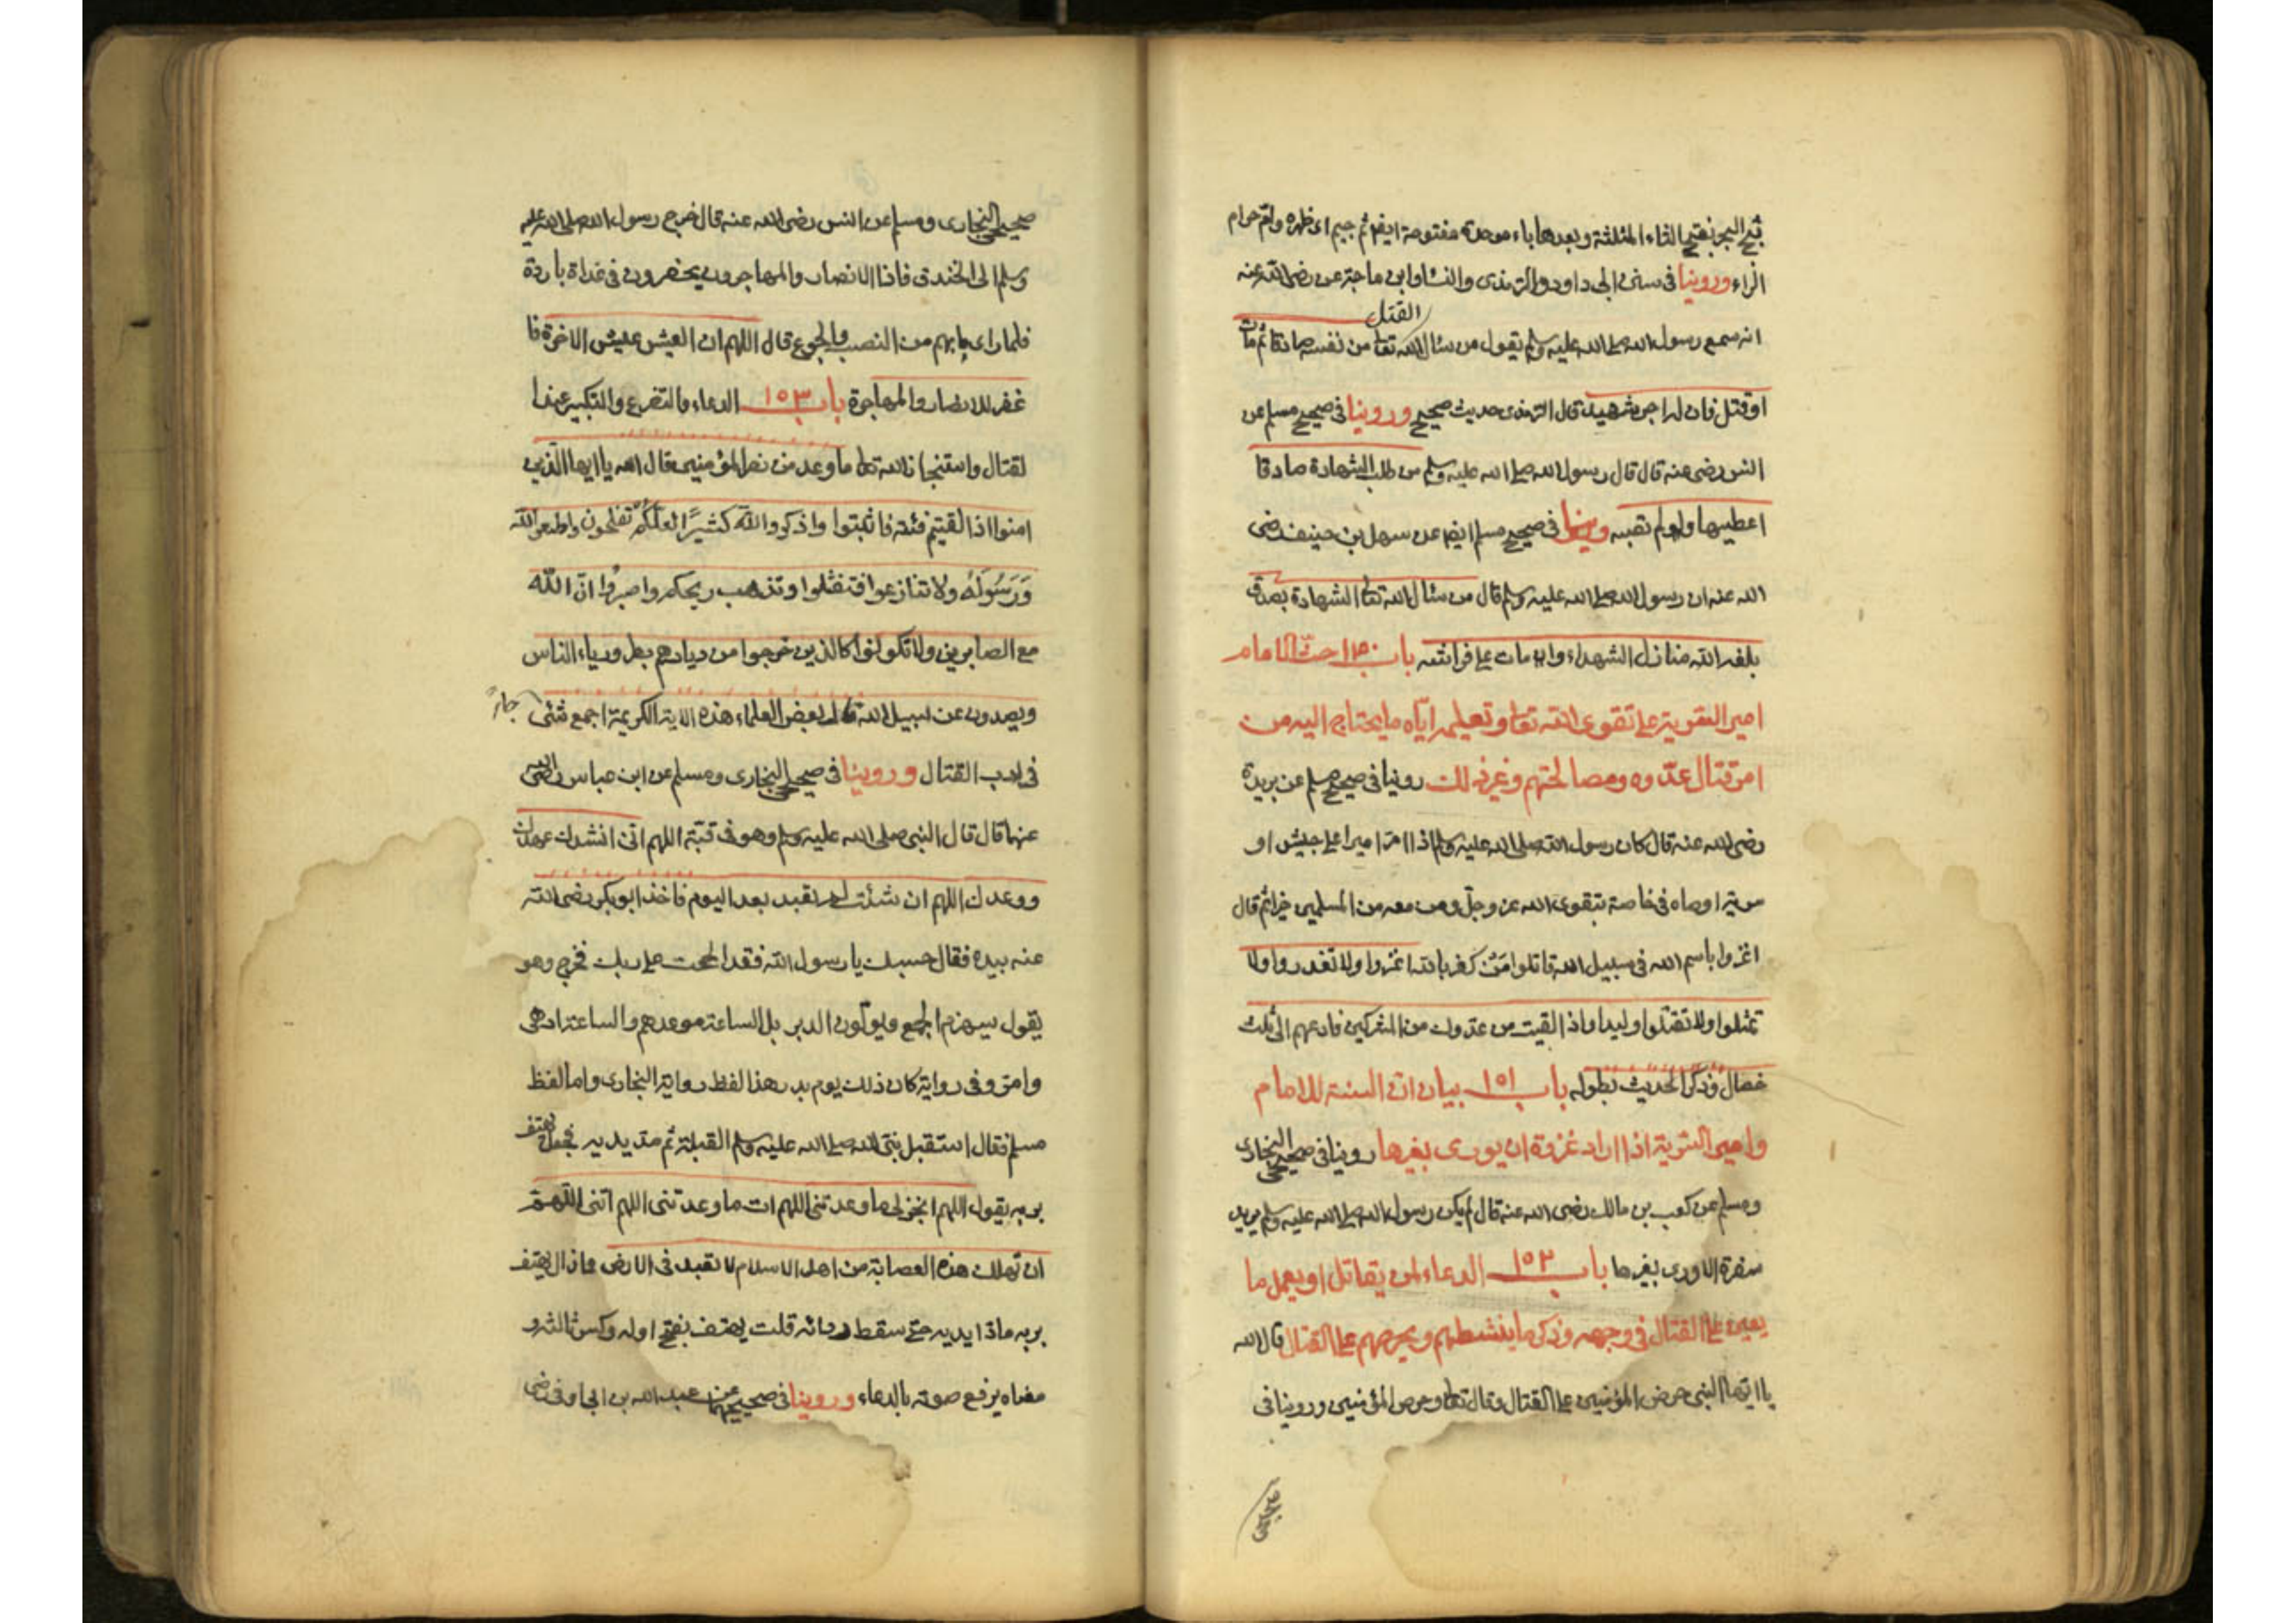 ثبج البحر بفتح الثاء المثلثة وبعدها باء موحدة مفتوحة ايضا ثم جيم اى ظهره وام حرام
الراء وروينا فى سنن ابى داود والترمذى والنسا وابن ماجة عن رضى الله عنه
القتل
انه سمع رسول الله صلى الله عليه وسلم يقول من سئال الله تعا من نفسه صادقا ثم مات
او قتل فان له اجر شهيد قال الترمذى حديث صحيح وروينا فى صحيح مسلم عن
انس رضى عنه قال قال رسول الله صلى الله عليه وسلم من طلب الشهادة صادقا
اعطيها ولو لم تصبه وروينا فى صحيح مسلم ايضا عن سهل بن حنيف رضى
الله عنه ان رسول الله صلى الله عليه وسلم قال من سئال الله تعا الشهادة بصدق
بلغه الله منازل الشهداء وان مات على فراشه باب ١٥٠ حث الامام
امير السرية على تقوى الله تعا وتعليمه اياه ما يحتاج اليه من
امر قتال عدوه ومصالحتهم وغير ذلك روينا فى صحيح مسلم عن بريدة
رضى الله عنه قال كان رسول الله صلى الله عليه وسلم اذا امر اميرا على جيش او
سرية اوصاه فى خاصة بتقوى الله عز وجل ومن معه من المسلمين خيرا ثم قال
اغزوا باسم الله فى سبيل الله قاتلوا من كفر بالله اغزوا ولا تغدروا ولا
تمثلوا ولا تقتلوا وليدا واذا لقيت من عدوك من المشركين فادعهم الى ثلث
خصال وذكر الحديث بطوله باب ١٥١ بيان ان السنة للامام
وامير السرية اذا اراد غزوة ان يورى بغيرها روينا فى صحيحى البخارى
ومسلم عن كعب بن مالك رضى الله عنه قال لم يكن رسول الله صلى الله عليه وسلم يريد
سفرة الا ورى بغيرها باب ١٥٢ الدعاء لمن يقاتل او يعمل ما
يعين على القتال فى وجهه وذكر ما ينشطهم ويحرضهم على القتال قال الله
يا ايها النبى حرض المؤمنين على القتال وقال تعا وحرض المؤمنين وروينا فى
صحيحى
صحيحى البخارى ومسلم عن انس رضى الله عنه قال خرج رسول الله صلى الله عليه
وسلم الى الخندق فاذا الانصار والمهاجرون يحفرون فى غداة باردة
فلما راى ما بهم من النصب والجوع قال اللهم ان العيش عيش الاخرة فا
غفر للانصار والمهاجرة باب ١٥٣ الدعاء والتضرع والتكبير عند ا
لقتال واستنجاز الله تعا ما وعد من نصر المؤمنين قال الله يا ايها الذين
امنوا اذا لقيتم فئة فاثبتوا واذكروا الله كثيرًا لعلكم تفلحون واطيعوا الله
وَرَسُولَهُ ولا تنازعوا فتفشلوا وتذهب ريحكم واصبروا انّ الله
مع الصابرين ولا تكونوا كالذين خرجوا من ديارهم بطر ورياء الناس
ويصدون عن سبيل الله قال بعض العلماء هذه الاية الكريمة اجمع شئى جاءَ
فى ادب القتال وروينا فى صحيحى البخارى ومسلم عن ابن عباس رضى الله
عنهما قال قال النبى صلى الله عليه وسلم وهو فى قبته اللهم انى انشدك عهدك
ووعدك اللهم ان شئت لم تعبد بعد اليوم فاخذ ابو بكر رضى الله
عنه بيده فقال حسبك يا رسول الله فقد الححت على ربك فخرج وهو
يقول سيهزم الجمع ويولون الدبر بل الساعة موعدهم والساعة ادهى
وامر وفى رواية كان ذلك يوم بدر هذا لفظ رواية البخارى واما لفظ
مسلم فقال استقبل نبى الله صلى الله عليه وسلم القبلة ثم مد يديه فجعل يهتف
بربه يقول اللهم انجز لى ما وعدتنى اللهم ات ما وعدتنى اللهم اتنى اللهم
ان تهلك هذه العصابة من اهل الاسلام لا تعبد فى الارض فما زال يهتف
بربه مادا يديه حتى سقط ردائه قلت يهتف بفتح اوله وكسر ثالثه و
معناه يرفع صوته بالدعاء وروينا فى صحيحيهما عن عبد الله بن ابى اوفى رضى